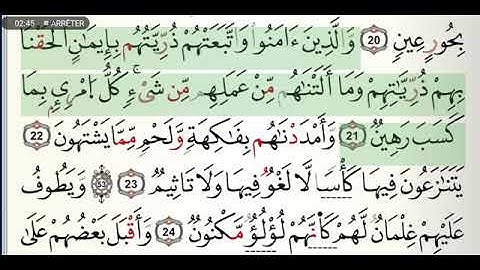 02:45 ■ ARRÊTER
بِحُورٍ عِينٍ 20 وَالَّذِينَ ءَامَنُوا وَاتَّبَعَتْهُمْ ذُرِّيَّتُهُم بِإِيمَانٍ أَلْحَقْنَا
بِهِمْ ذُرِّيَّاتِهِمْ وَمَا أَلَتْنَاهُم مِّنْ عَمَلِهِم مِّن شَيْءٍ كُلُّ امْرِئٍ بِمَا
كَسَبَ رَهِينٌ 21 وَأَمْدَدْنَاهُم بِفَاكِهَةٍ وَلَحْمٍ مِّمَّا يَشْتَهُونَ 22
يَتَنَازَعُونَ فِيهَا كَأْسًا لَّا لَغْوٌ فِيهَا وَلَا تَأْثِيمٌ 23 53 وَيَطُوفُ
عَلَيْهِمْ غِلْمَانٌ لَّهُمْ كَأَنَّهُمْ لُؤْلُؤٌ مَّكْنُونٌ 24 وَأَقْبَلَ بَعْضُهُمْ عَلَىٰ